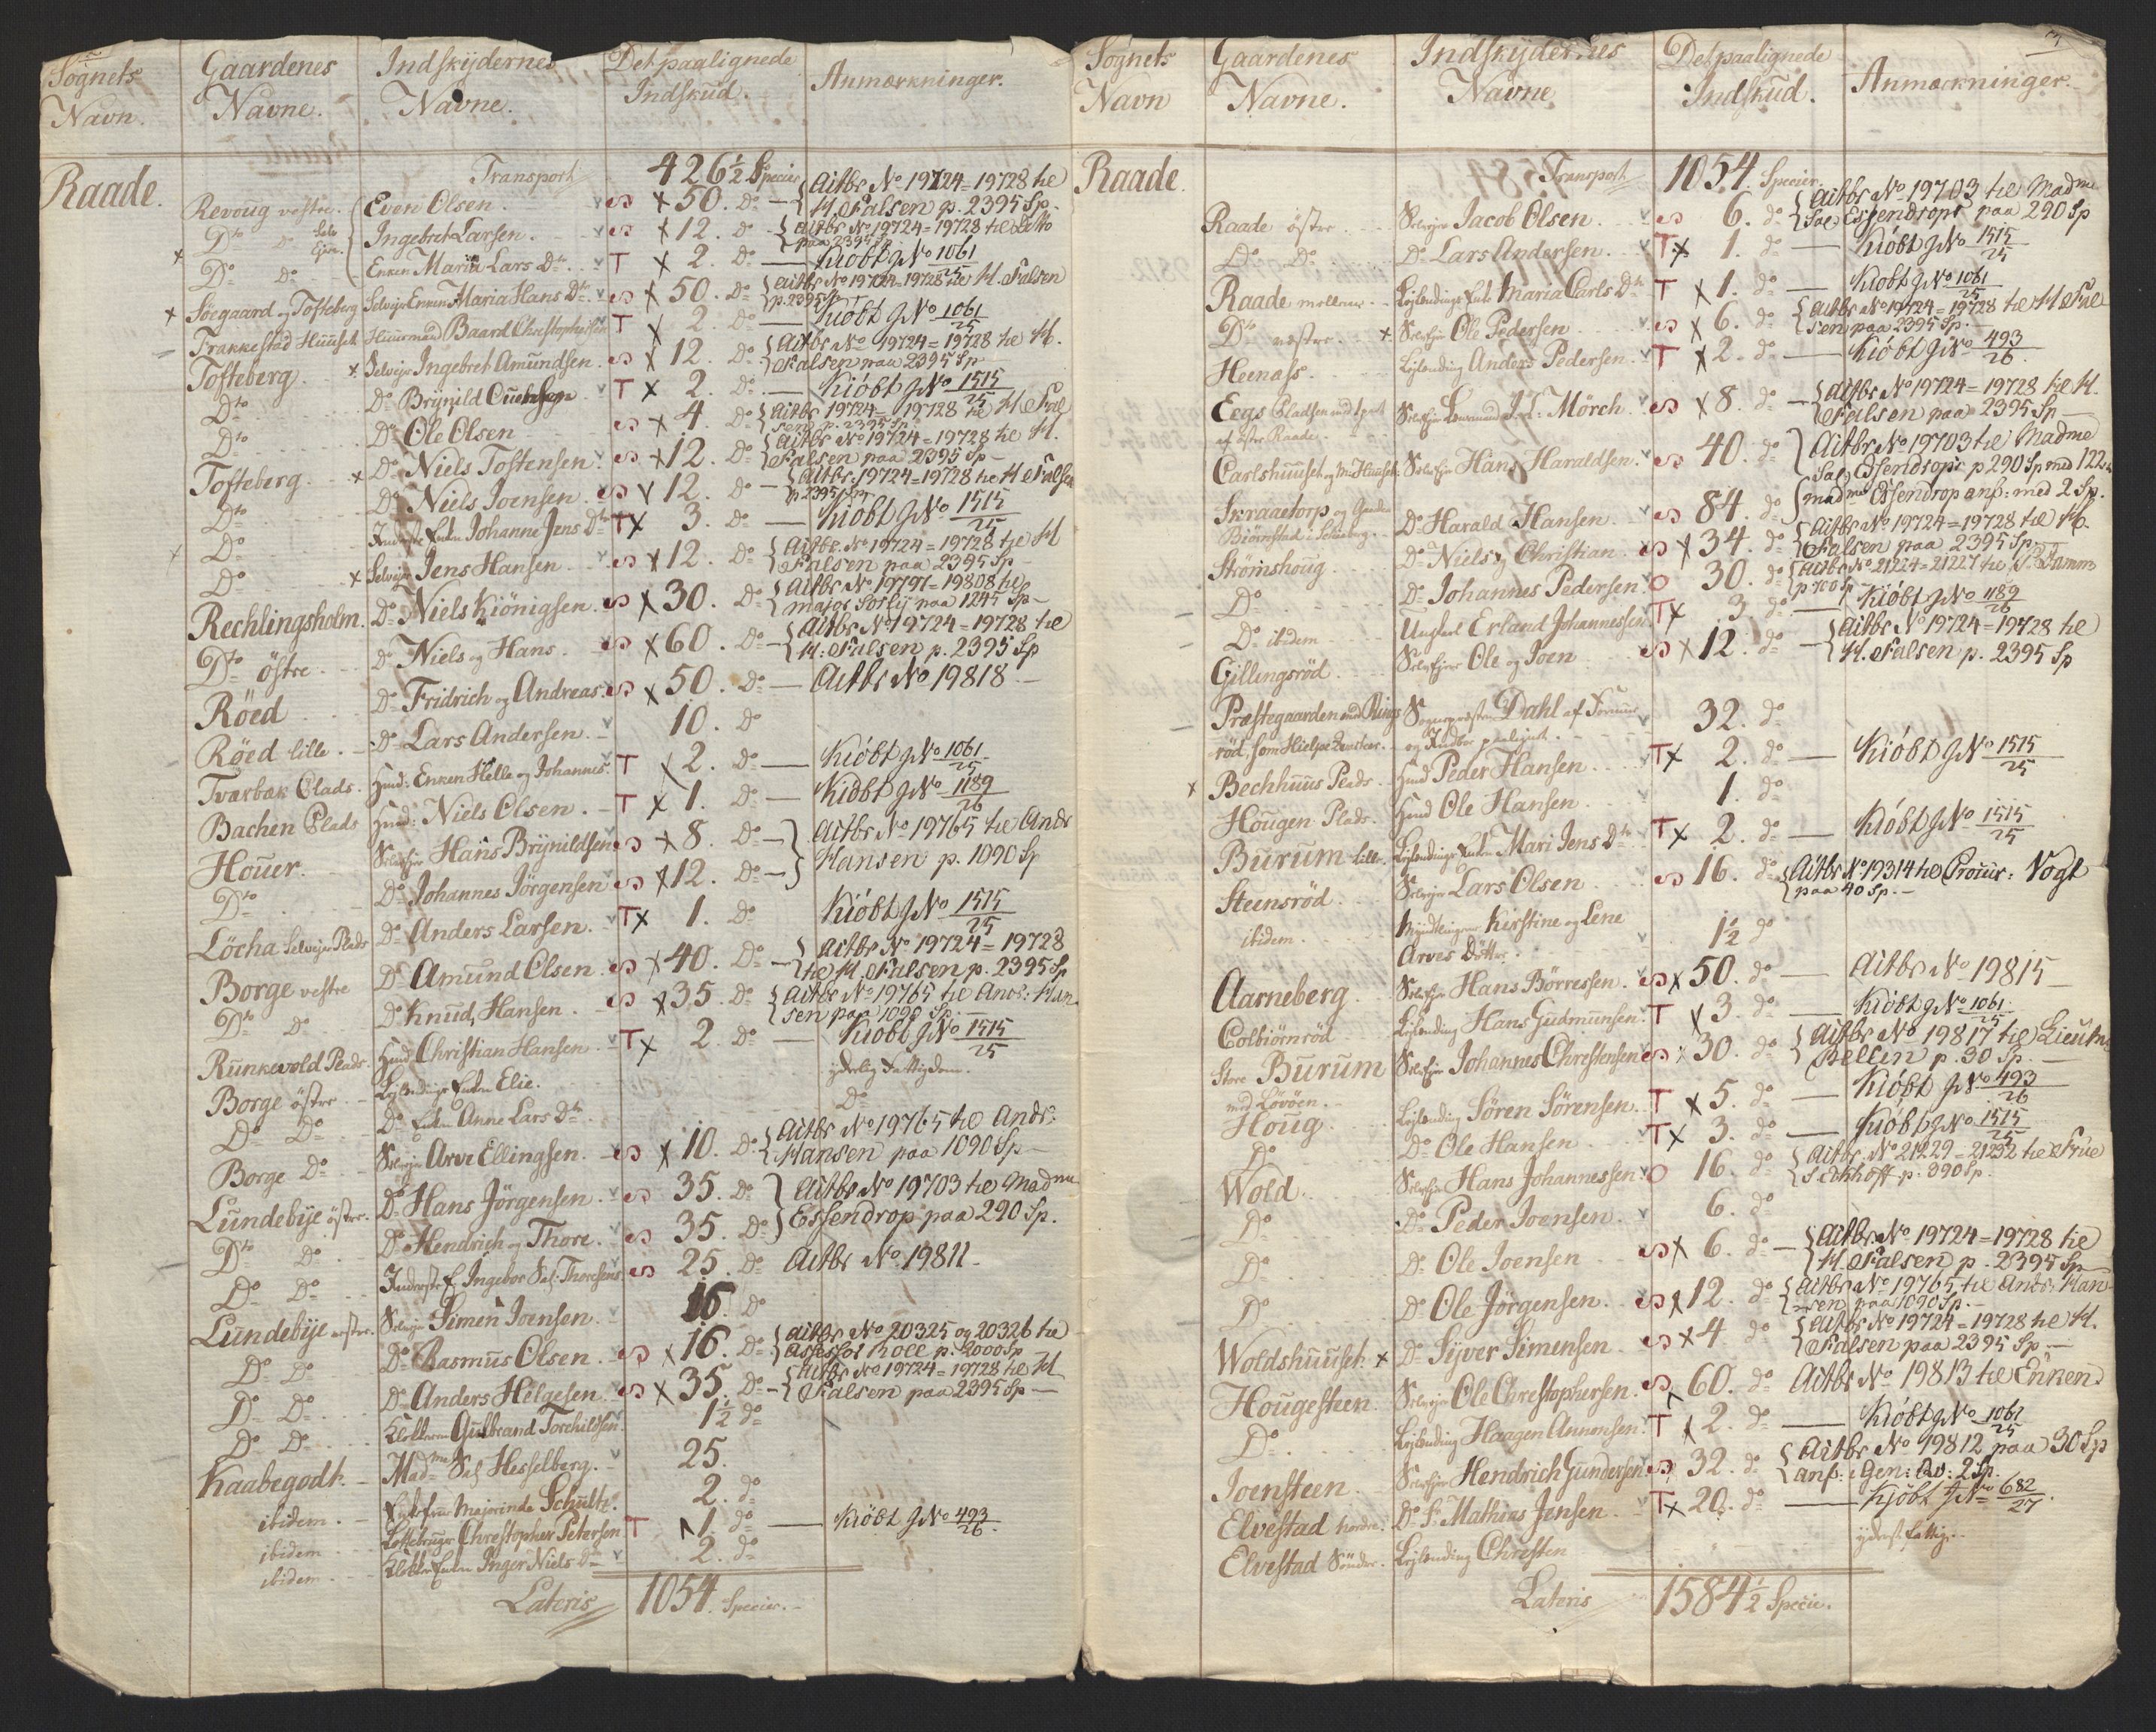 Sognets Navn. Gaardenes Navne. Indskydernes Navne. Det paalignede Indskud. Anmærkninger.
Raade. Transport 426½ Specier
Revoug vestre. Even Olsen. 50. Do Aitbr No 19724=19728 til H. Falsen p. 2395 Sp.
Dto Do Ingebret Larsen. 12. Do Aitbr No 19724=19728 til Ditto paa 2395 Sp.
Do Do Enken Maria Lars Dtr. T 2. Do Kiöbt JNo 1061/25
Söegaard og Tofteberg Selvejer Enken Maria Hans Dtr. 50. Do Aitbr No 19724=19728 til H. Falsen p. 2395 Sp
Frakkestad Huuset Huusmand Baard Christophersen T 2. Do Kiöbt JNo 1061/25
Tofteberg. Selvejer Ingebret Amundsen. 12. Do Aitbr No 19724=19728 til H. Falsen paa 2395 Sp
Dto Do Brynild T 2. Do Kiöbt JNo 1515/25
Dto Do Ole Olsen 4. Do Aitbr 19724=19728 til H Falsen p. 2395 Sp.
Tofteberg. Do Niels Tostensen. 12. Do Aitbr No 19724=19728 til H. Falsen paa 2395 Sp
Dto Do Niels Joensen 12. Do Aitbr. 19724=19728 til H Falsen p 2395 Sp
Do Enken Johanne Jens Dtr T 3. Do Kiöbt JNo 1515/25
Do Selvejer Jens Hansen 12. Do Aitbr. No 19724=19728 til H Falsen paa 2395 Sp
Rechlingsholm. Do Niels Kiönigsen. 30. Do Aitbr No 19797=19808 til major Sorly paa 1245 Sp
Dto östre. Do Niels og Hans. 60. Do Aitbr No 19724=19728 til H. Falsen p. 2395 Sp
Röed Do Fridrich og Andreas. 50. Do Aitbr No 19818
Röed lille. Do Lars Andersen. 10. Do
Tværbæk Plads. Husmd: Enken Helle og Johannes. T 2. Do Kiöbt JNo 1061/25
Bachen Plads Husmd: Niels Olsen. T 1. Do Kiöbt JNo 1189/26
Houer. Selvejer Hans Brynildsen 8. Do Aitbr No 19765 til Andr Hansen p. 1090 Sp
Dto Do Johannes Jörgensen 12. Do
Löcha Selvejer Plads Do Anders Larsen. T 1. Do Kiöbt JNo 1515/25
Borge vestre Do Amund Olsen. 40. Do Aitbr No 19724=19728 til H. Falsen p. 2395 Sp
Dto Do Do Knud Hansen. 35. Do Aitbr No 19765 til Andr: Hansen paa 1090 Sp.
Runkevold Plads. Husmd Christian Hansen. T 2. Do Kiöbt JNo 1515/25
Borge östre. Lejlendings Enken Elie. yderlig Fattigdom.
Do Do Do Enken Anne Lars Dtr Do
Borge Do Selvejer Arve Ellingsen. 10. Do Aitbr No 19765 til Andr: Hansen paa 1090 Sp
Lundebye östre. Do Hans Jörgensen. 35. Do Aitbr No 19703 til Madme Essendrop paa 290 Sp.
Dto Do Do Hendrich og Thore. 35. Do
Do Do Ingebor Sal: Thoresens 25. Do Aitbr No 19811
Lundebye vestre. Selvejer Simen Joensen. 16. Do
Do Do Do Rasmus Olsen. 16. Do Aitbr No 20325 og 20326 til Assessor Roll p. 2000 Sp
Do Do Do Anders Helgesen. 35. Do Aitbr No 19724=19728 til H Falsen paa 2395 Sp
Do Do Klokkeren Gulbrand Torchildsen. 1½ do
Kaabegodt. Madme Sal Hesselberg. 25.
ibidem. Enkefrue Majorinde Schultz. 2. do
ibidem Christopher Petersen T 1. do Kiöbt JNo 493/26.
ibidem. Klokker Enken Inger Niels Dtr 2. do
Lateris 1054. Specier.

Sognets Navn Gaardenes Navne. Indskydernes Navne Det paalignede Indskud. Anmærkninger.
Raade. Transport 1054. Specier.
Raade östre. Selvejer Jacob Olsen. 6. do Aitbr No 19703 til Madme Sal Essendrops paa 290 Sp
Do Do Do Lars Andersen. T 1. do Kiöbt JNo 1515/25
Raade mellem Lejlendings Enke Maria Carls Dtr T 1. do Kiöbt JNo 1061/25
Dto vestre. Selvejer Ole Pedersen 6. do Aitbr No 19724=19728 til H Falsen paa 2395 Sp.
Heenass. Lejlending Anders Pedersen. T 2. do Kiöbt JNo 493/26.
Eegs Pladsen med part af östre Raade. Selvejer Lensmand Mörch. 8. do Aitbr No 19724=19728 til H. Falsen paa 2395 Sp
Carlshuuset Selvejer Hans Haraldsen. 40. do Aitbr No 19703 til Madme Sal Essendrops p 290 Sp
Skraaetorp og Gaarden Biörnstad i Do Harald Hansen 84. do madme Essendrop ans: med 2 Sp.
Strömshoug. Do Niels og Christian. 34. do Aitbr No 19724=19728 til H. Falsen paa 2395 Sp
Do Do Johannes Pedersen. 30. do Aitbr No 21224=21227 til p 700 Sp
Do ibidem Ungkarl Erland Johannessen T 3 do Kiöbt JNo 1189/26
Gillingsröd. Selvejer Ole og Joen 12. do Aitbr No 19724=19728 til H. Falsen p. 2395 Sp
Præstegaarden med Rings röd, som Hielpe Sognepræsten Dahl af 32. do
Bechhuus Plads. Husmd Peder Hansen T 2. do Kiöbt JNo 1515/25
Hougen Plads. Husmd Ole Hansen 1. do
Burum lille. Lejlendings Enken Mari Jens Dtr T 2. do Kiöbt JNo 1515/25
Steensröd. Selvejer Lars Olsen 16. do Aitbr No 19314 til Procur: Vogt paa 40 Sp.
ibidem. Myndtlingerne Kirstine og Lene Arves Dötter. 1½ do
Aarneberg. Selvejer Hans Börresen. 50. do Aitbr No 19815
Colbiörnröd Lejlending Hans Gudmunsen. T 3. do Kiöbt JNo 1061/25
Store Burum med Lövöen. Selvejer Johannes Chrestensen 30. do Aitbr No 19817 til Lieutn: Bellin p. 30 Sp.
Houg Lejlending Sören Sörensen. T 5. do Kiöbt JNo 493/26
Do Do Ole Hansen T 3. do Kiöbt JNo 1515/25
Wold. Selvejer Hans Johannessen 16 do Aitbr. No 21229=21232 til Frue Sechhoff p. 890 Sp.
Do Do Peder Joensen. 6. do
Do Do Ole Joensen 6. do Aitbr No 19724=19728 til H. Falsen p. 2395 Sp
Do Do Ole Jörgensen. 12. do Aitbr No 19765 til Andr: Hansen paa 1090 Sp.
Woldshuuset. Do Syver Simensen 4 do Aitbr No 19724=19728 til H. Falsen paa 2395 Sp
Hougesteen. Selvejer Ole Chrestophersen. 60. do Aitbr No 19813 til Enken
Do Lejlending Haagen Annonsen. T 2. do Kiöbt JNo 1061/25
Joensteen Selvejer Hendrich Gundersen 32. do Aitbr No 19812 paa 30 Sp ans: i Gen: Qv: 2 Sp.
Elvestad nordre. Do Mathias Jensen. T 20. do Kjöbt JNo 682/27.
Elvestad Söndre. Lejlending Chresten yderst fattig.
Lateris 1584½ Specie.